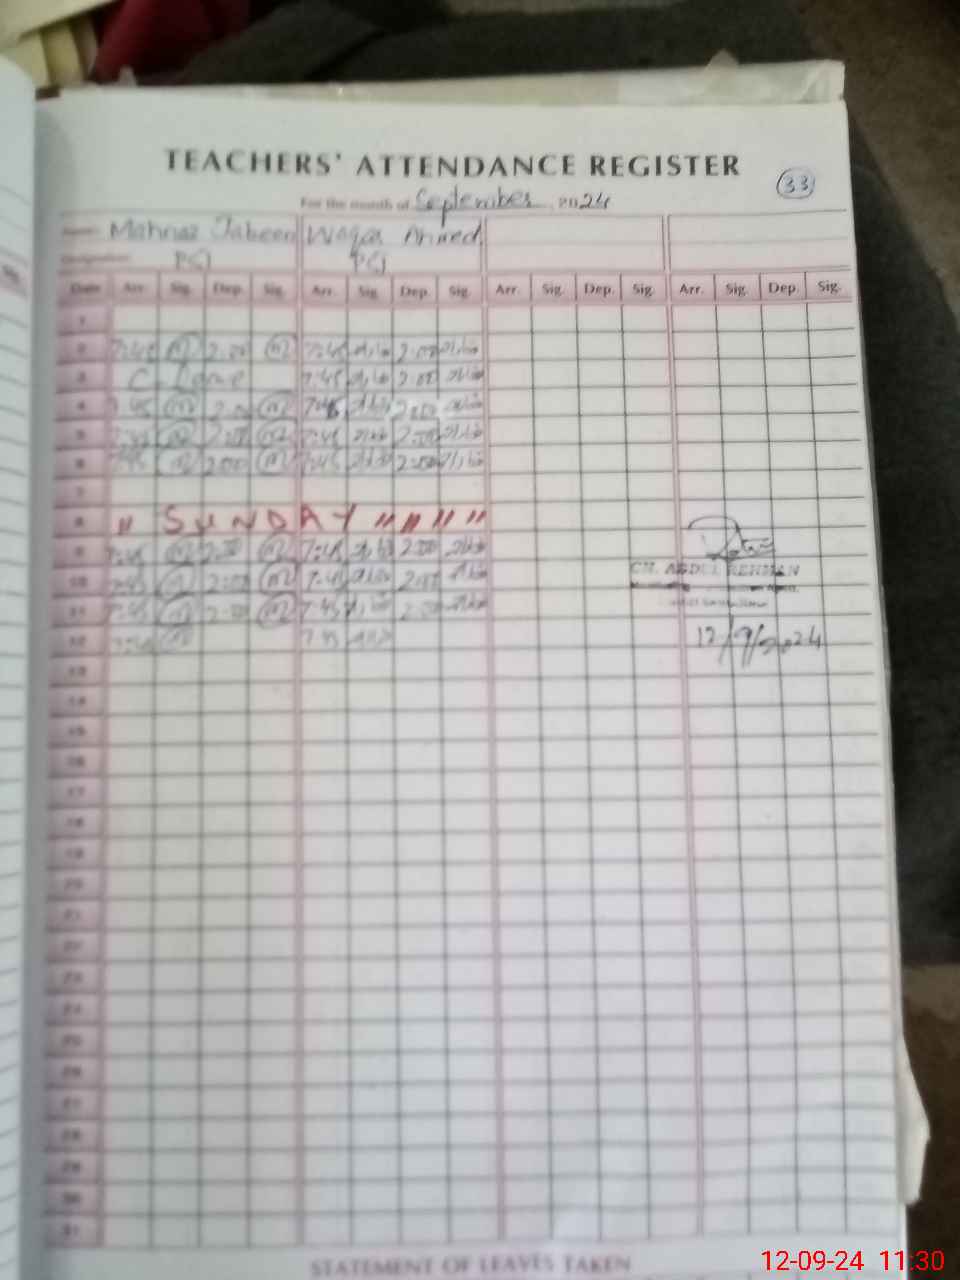 TEACHERS' ATTENDANCE REGISTER
33
For the month of September 2024
Name Mahnaz Jabeen Waqas Ahmed
Designation
Date Arr. Sig. Dep. Sig. Arr. Sig. Dep. Sig. Arr. Sig. Dep. Sig. Arr. Sig. Dep. Sig.
1
2 7:45 2:00 7:45 2:00
3 C. Leave 7:45 2:00
4 7:45 2:00 7:45 2:00
5 7:45 2:00 7:45 2:00
6 7:45 2:00 7:45 2:00
7
8 " SUNDAY " " " "
9 7:45 2:00 7:45 2:00
10 7:45 2:00 7:45 2:00
CH. ABDUL REHMAN
11 7:45 2:00 7:45 2:00
12 7:45 7:45 12/9/2024
13
14
15
16
17
18
19
20
21
22
23
24
25
26
27
28
29
30
31
STATEMENT OF LEAVES TAKEN
12-09-24 11:30